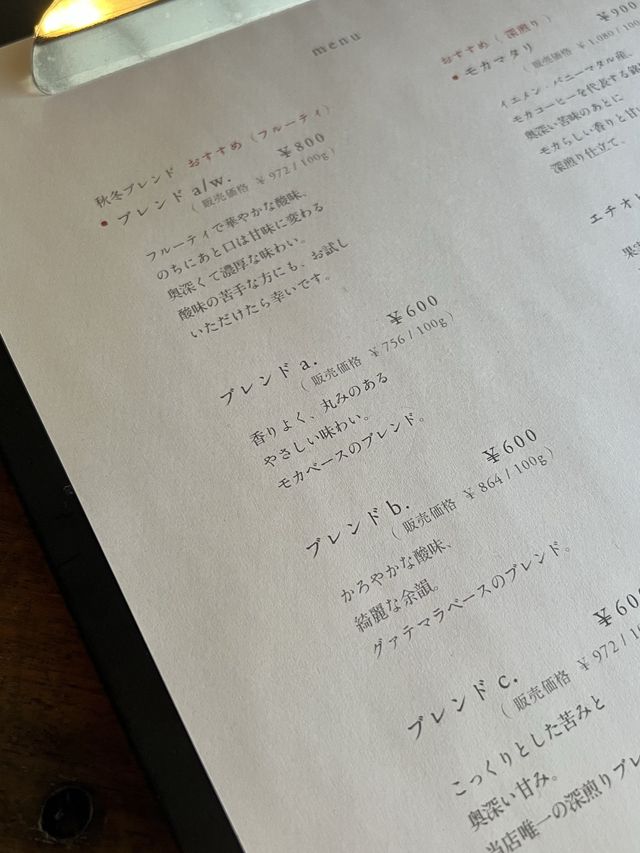 menu
秋冬ブレンド おすすめ（フルーティ）
• ブレンド a/w. ￥800
（ 販売価格 ￥972/100g）
フルーティで華やかな酸味、
のちにあと口は甘味に変わる
奥深くて濃厚な味わい。
酸味の苦手な方にも、お試し
いただけたら幸いです。
ブレンド a. ￥600
（ 販売価格 ￥756/100g）
香りよく、丸みのある
やさしい味わい。
モカベースのブレンド。
ブレンド b. ￥600
（ 販売価格 ￥864/100g）
かろやかな酸味、
綺麗な余韻。
グァテマラベースのブレンド。
ブレンド c. ￥600
（ 販売価格 ￥972/10
こっくりとした苦みと
奥深い甘み。
当店唯一の深煎りブレ
おすすめ（ 深煎り ）
• モカマタリ ￥900
（ 販売価格 ￥1,080/10
イエメン・バニーマタル産、
モカコーヒーを代表する
奥深い苦味のあとに
モカらしい香りと甘
深煎り仕立て。
エチオ
果実